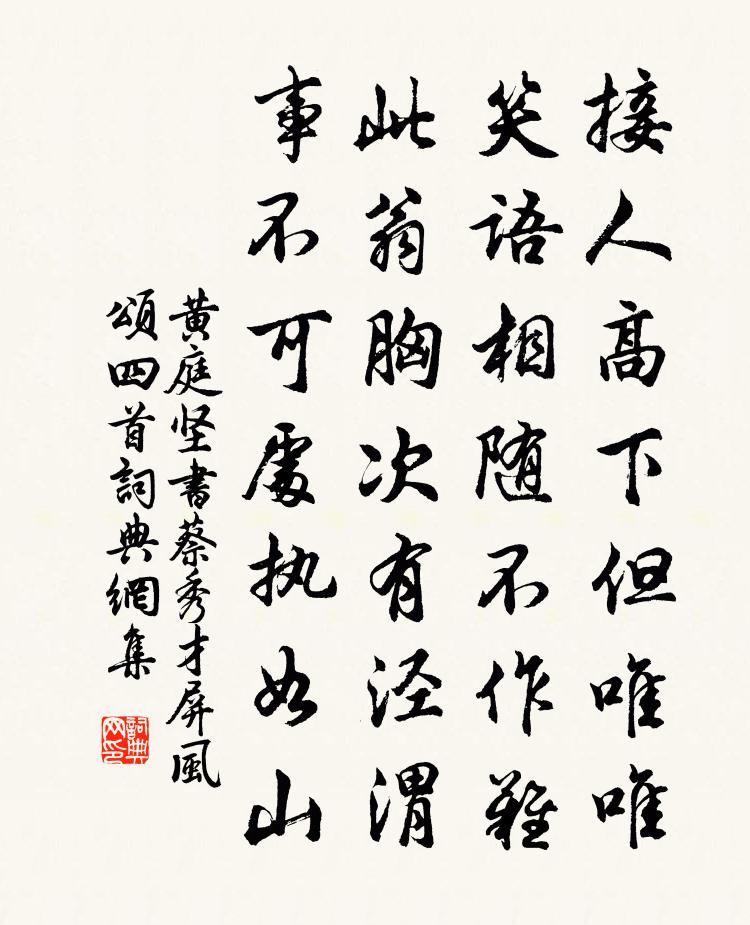 接人高下但唯唯
笑语相随不作難
此翁胸次有泾渭
事不可處执如山
黄庭坚書蔡秀才屏風
頌四首詞典網集
詞典網印